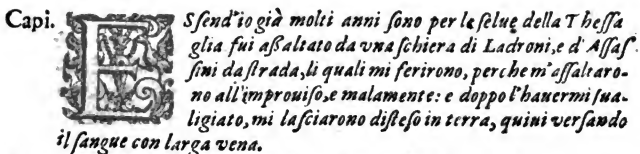 Capi. ESſend'io già molti anni ſono per le ſelue della Theſſa
glia fui aſſaltato da vna ſchiera di Ladroni, e d'Aſſaſ-
ſini da ſtrada, li quali mi ferirono, perche m'aſſaltaro-
no all'improuiſo, e malamente: e doppo l'hauermi ſua-
ligiato, mi laſciarono diſteſo in terra, quiui verſando
il ſangue con larga vena.